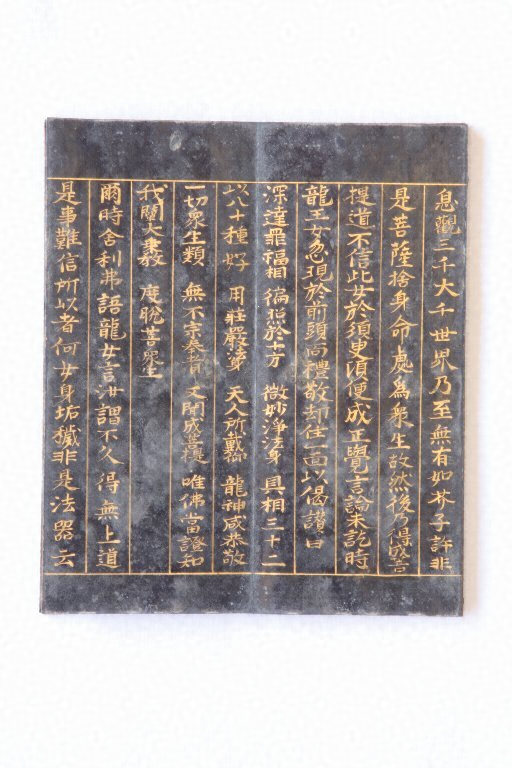 息觀三千大千世界乃至無有如芥子許非
是菩薩捨身命處為衆生故然後乃得成菩
提道不信此女於須臾頃便成正覺言論未訖時
龍王女忽現於前頭面禮敬却住一面以偈讃曰
深達罪福相 徧照於十方 微妙淨法身 具相三十二
以八十種好 用莊嚴法身 天人所戴仰 龍神咸恭敬
一切衆生類 無不宗奉者 又聞成菩提 唯佛當證知
我闡大乗教 度脫苦衆生
爾時舍利弗語龍女言汝謂不久得無上道
是事難信所以者何女身垢穢非是法器云